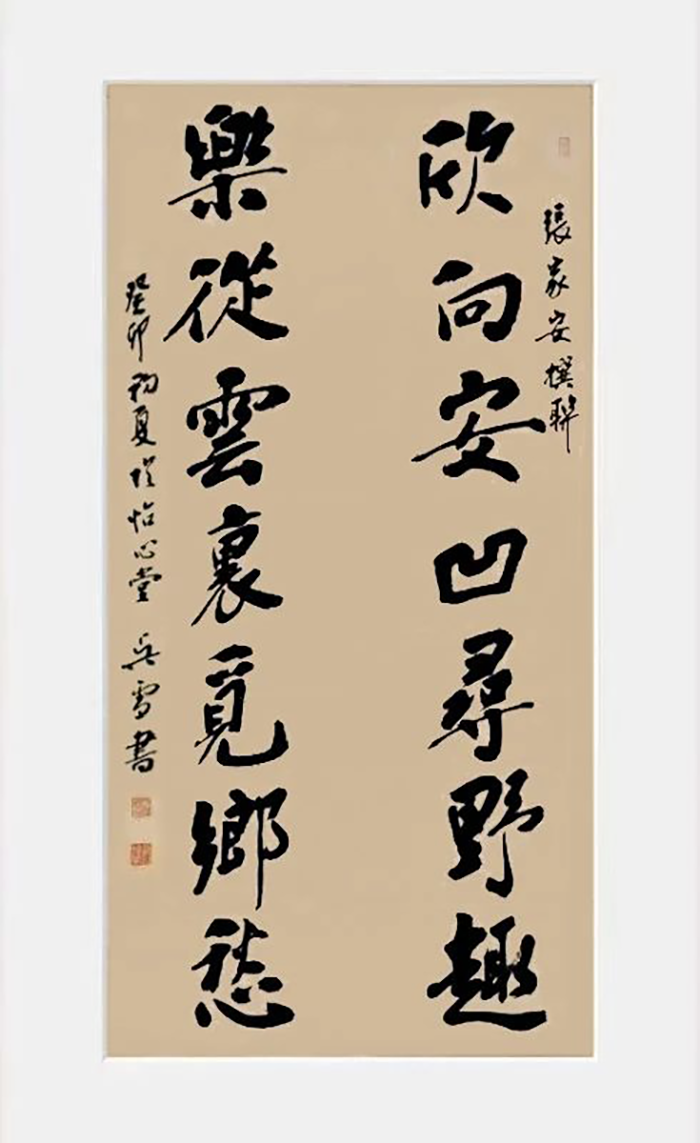 張家安撰聯
欣向安凹尋野趣
樂從雲裏覓鄉愁
癸卯初夏於怡心堂 吳雪書